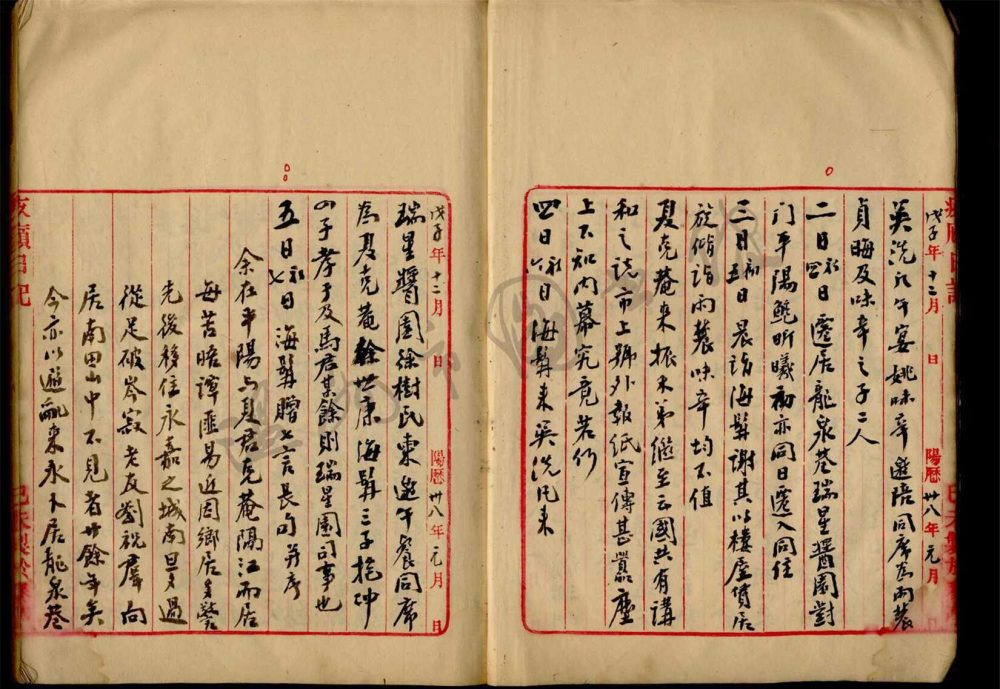 戊子年十二月　日　陽曆卅八年元月　日
吳洗凡午宴姚味辛邀陪同席為雨農
貞晦及味辛之子二人
二日初四日　遷居龍泉巷瑞星醬園對
門平陽鮑昕曦初亦同日遷入同住
三日初五日　晨詣海髯謝其以樓屋借居
旋偕詣雨農味辛均不值
夏克菴來振木弟繼至云國共有講
和之說市上號外報紙宣傳甚囂塵
上不知內幕究竟若何
四日初六日　海髯來吳洗凡來
戊子年十二月　日　陽曆卅八年元月　日
瑞星醬園徐樹氏柬邀午餐同席
為夏克菴徐世康海髯三子抱冲
四子孝于及馬君某餘則瑞星園司事也
五日初七日　海髯贈七言長句并序
余在平陽与夏君克菴隔江而居
每苦晤譚匪易近因鄉居多警
先後移住永嘉之城南旦夕過
從足破岑寂老友劉祝羣向
居南田山中不見者廿餘年矣
今亦以避亂來永卜居龍泉巷